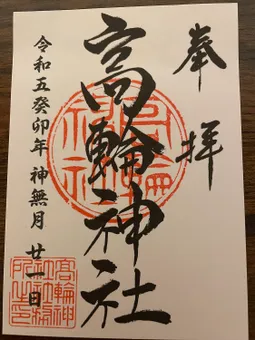 奉拝
高輪神社
令和五癸卯年 神無月 廿一日
高輪神
社社務
所之印